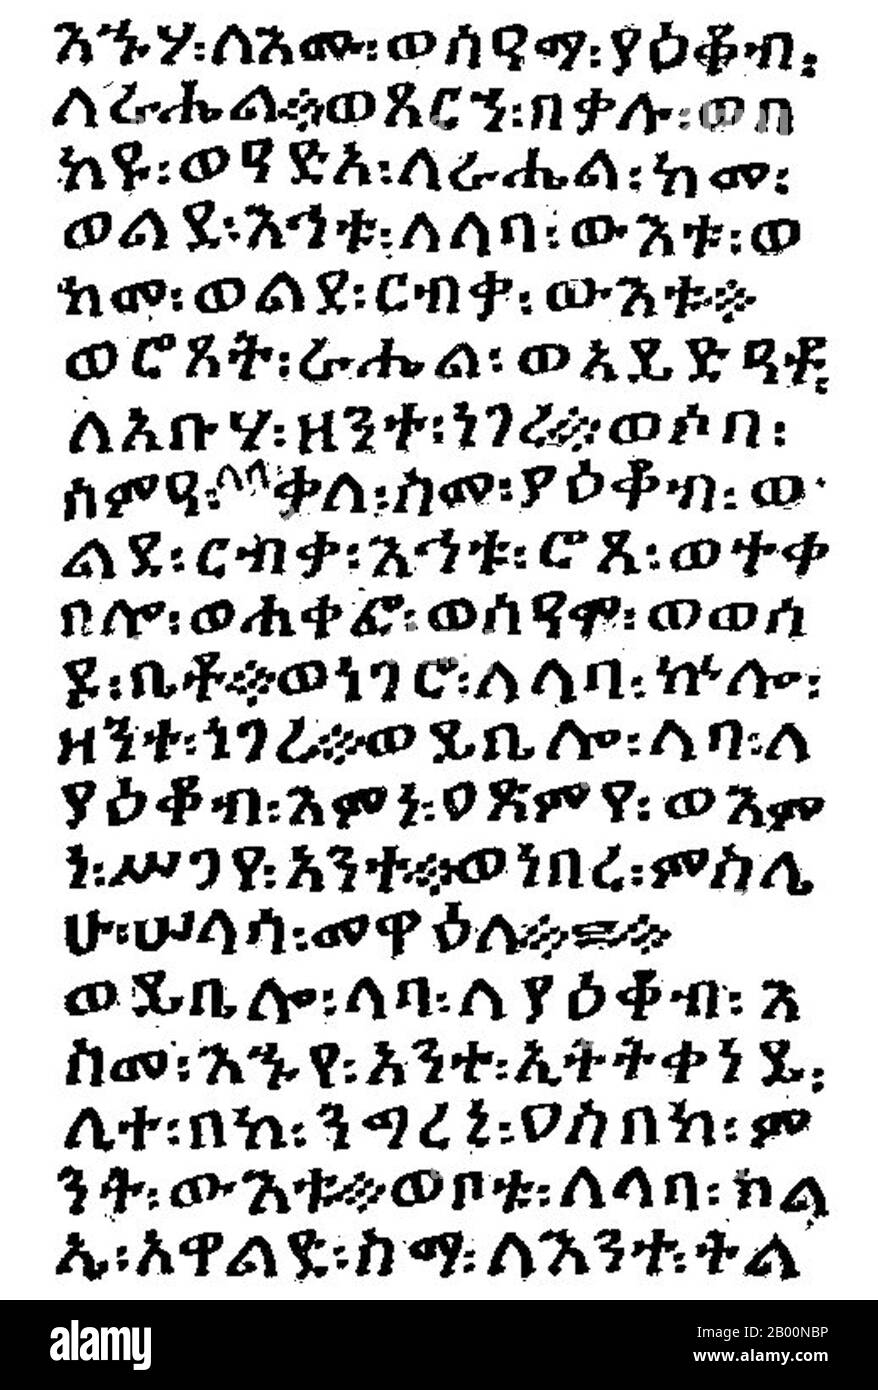 እኁሃ፡ለእሙ፡ወሰዓማ፡ያዕቆብ፡
ለራሔል፨ወጸርኀ፡በቃሉ፡ወበ
ከየ፡ወዓድአ፡ለራሔል፡ከመ፡
ወልደ፡እኅቱ፡ለላባ፡ውእቱ፡ወ
ከመ፡ወልደ፡ርብቃ፡ውእቱ፨
ወሮጸት፡ራሔል፡ወአይድዓቶ፡
ለአቡሃ፡ዘንተ፡ነገረ፨ወሶበ፡
ሰምዓ፡ላባ ቃለ፡ስመ፡ያዕቆብ፡ወ
ልደ፡ርብቃ፡እኅቱ፡ሮጸ፡ወተቀ
በሎ፡ወሐቀፎ፡ወሰዓሞ፡ወወሰ
ዶ፡ቤቶ፨ወነገሮ፡ለላባ፡ኵሎ፡
ዘንተ፡ነገረ፨ወይቤሎ፡ላባ፡ለ
ያዕቆብ፡እምነ፡ዐጽምየ፡ወእም
ነ፡ሥጋየ፡አንተ፨ወነበረ፡ምስሌ
ሁ፡ሠላሳ፡መዋዕለ፨፨
ወይቤሎ፡ላባ፡ለያዕቆብ፡እ
ስመ፡እኁየ፡አንተ፡ኢትትቀነይ፡
ሊተ፡በከ፡ንግረኒ፡ዐስበከ፡ም
ንት፡ውእቱ፨ወቦቱ፡ለላባ፡ክል
ኤ፡አዋልድ፡ስማ፡ለእንተ፡ትል
alamy
Image ID: 2B00NBP
www.alamy.com